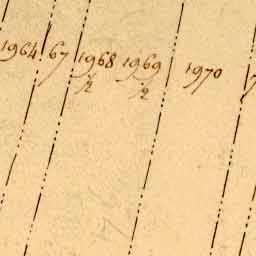 1964 67 1968 ½ 1969 ½ 1970